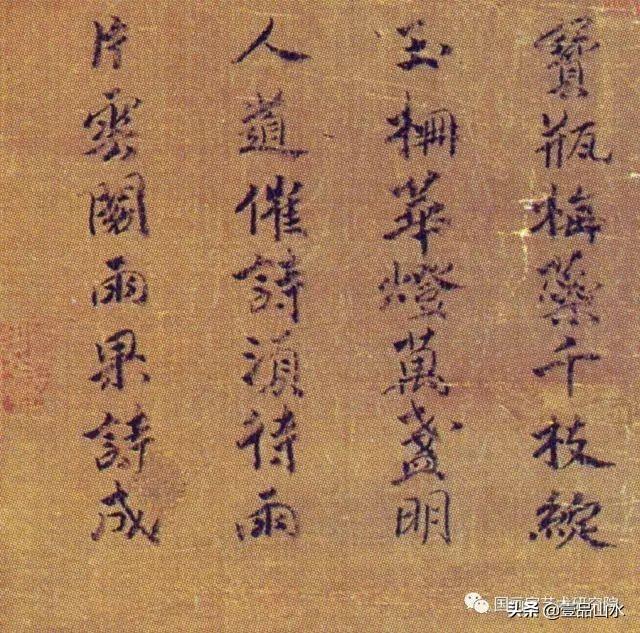 寶瓶梅蘂千枝綻
玉柵華燈萬盞明
人道催詩湏待雨
片雲閣雨果詩成
国画家艺术研究院
头条 @壹品山水